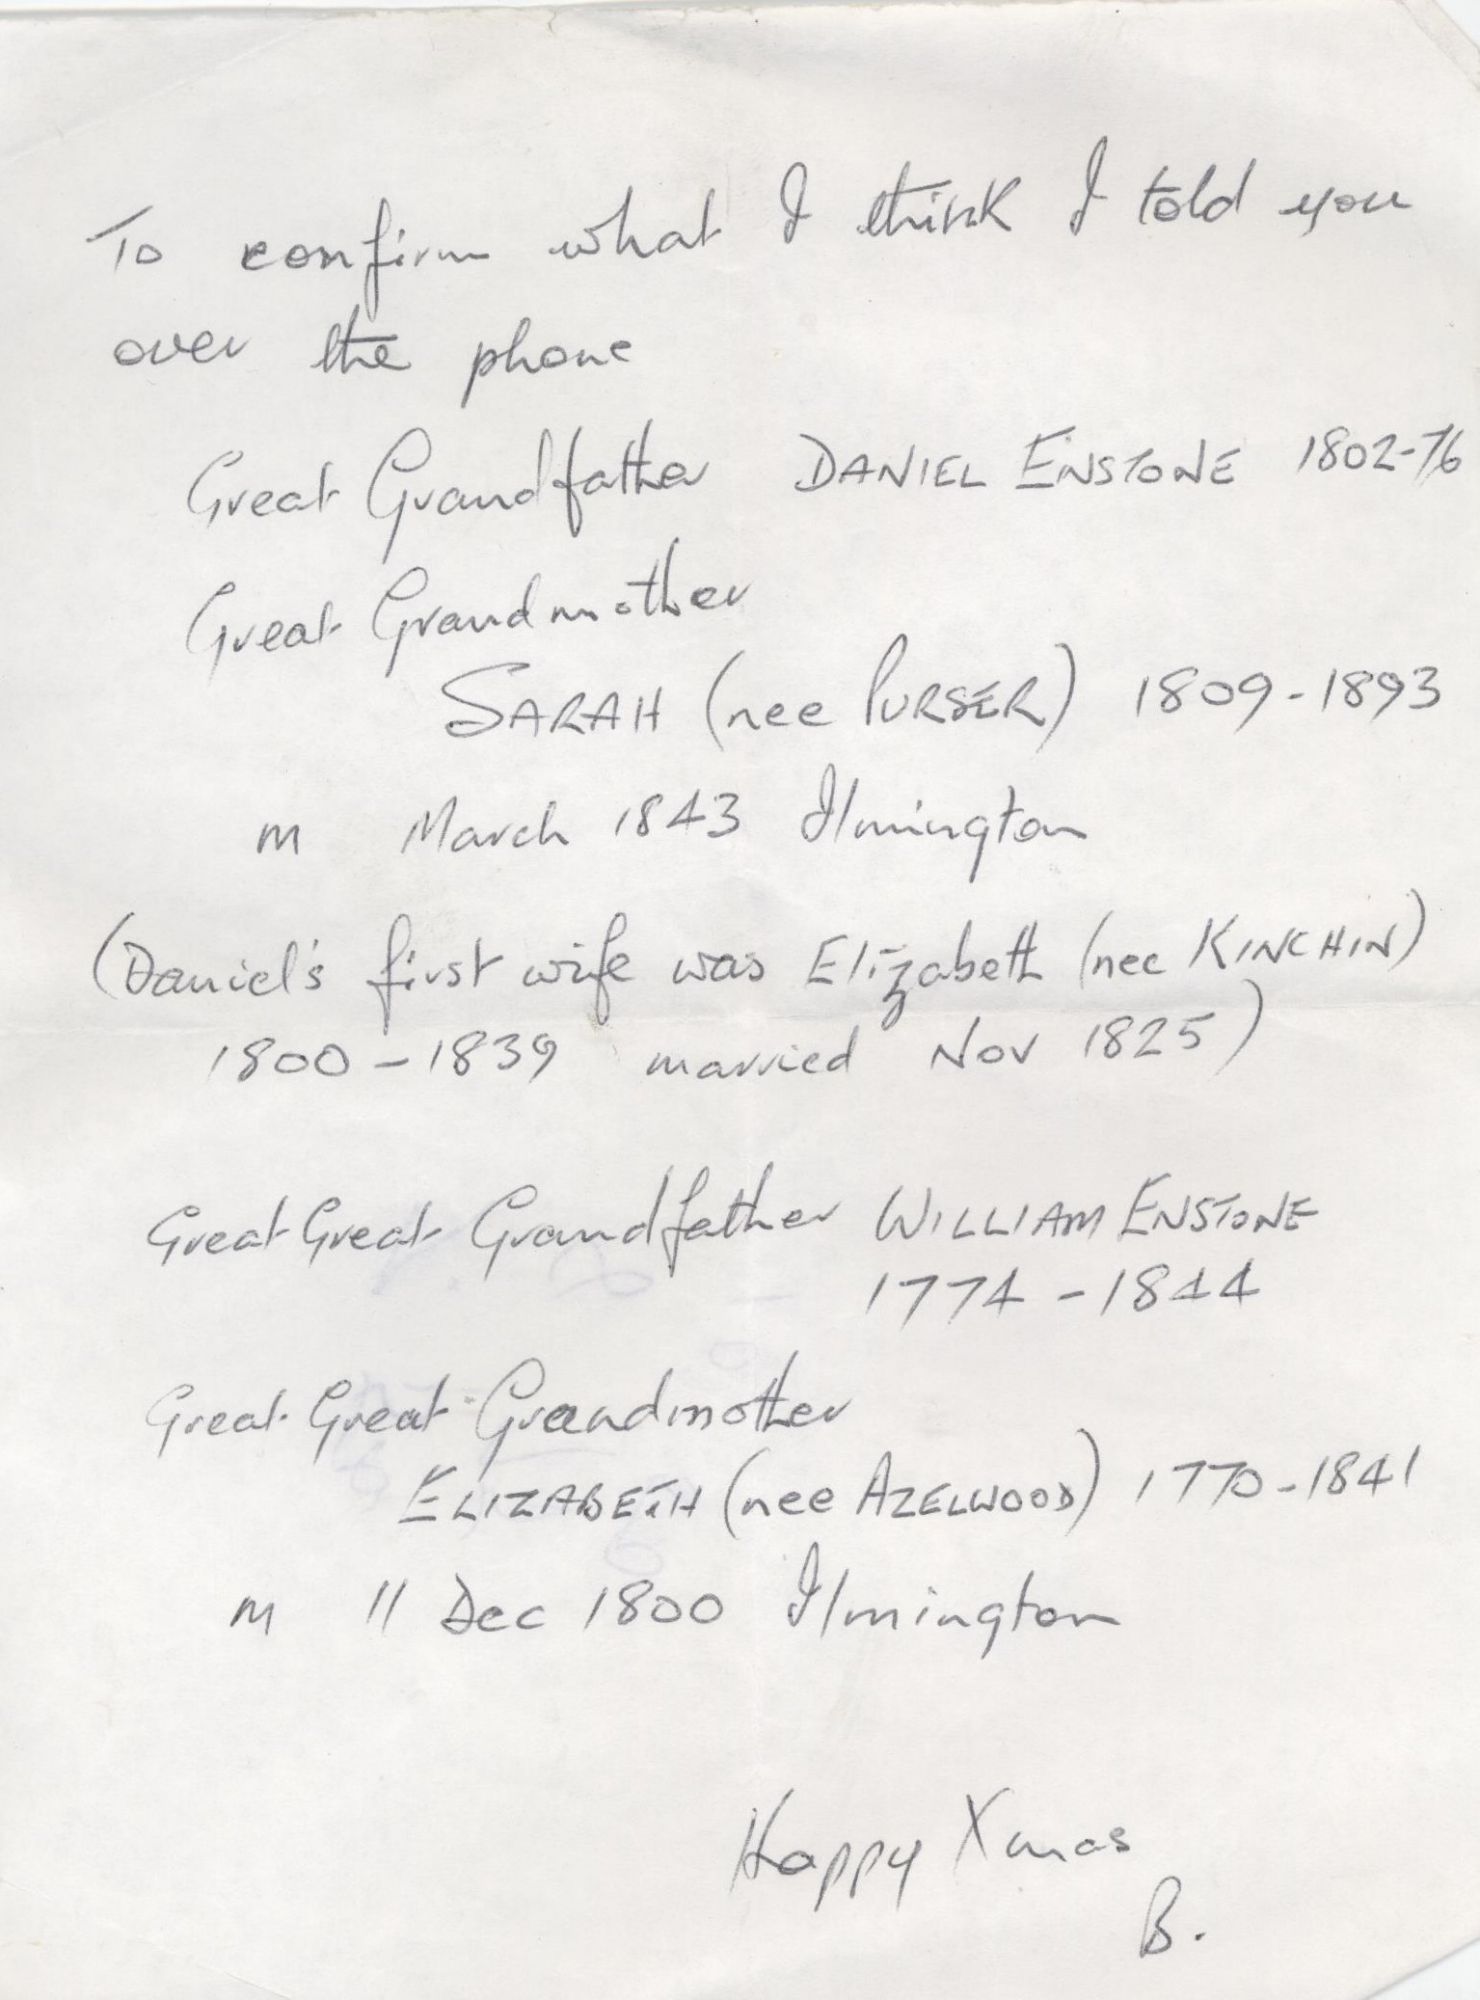 To confirm what I think I told you
over the phone
Great Grandfather DANIEL ENSTONE 1802-76
Great Grandmother
SARAH (nee PURSER) 1809-1893
m March 1843 Ilmington
(Daniel's first wife was Elizabeth (nee KINCHIN)
1800-1839 married Nov 1825)
Great Great Grandfather WILLIAM ENSTONE
1774-1844
Great Great Grandmother
ELIZABETH (nee AZELWOOD) 1770-1841
m 11 Dec 1800 Ilmington
Happy Xmas
B.